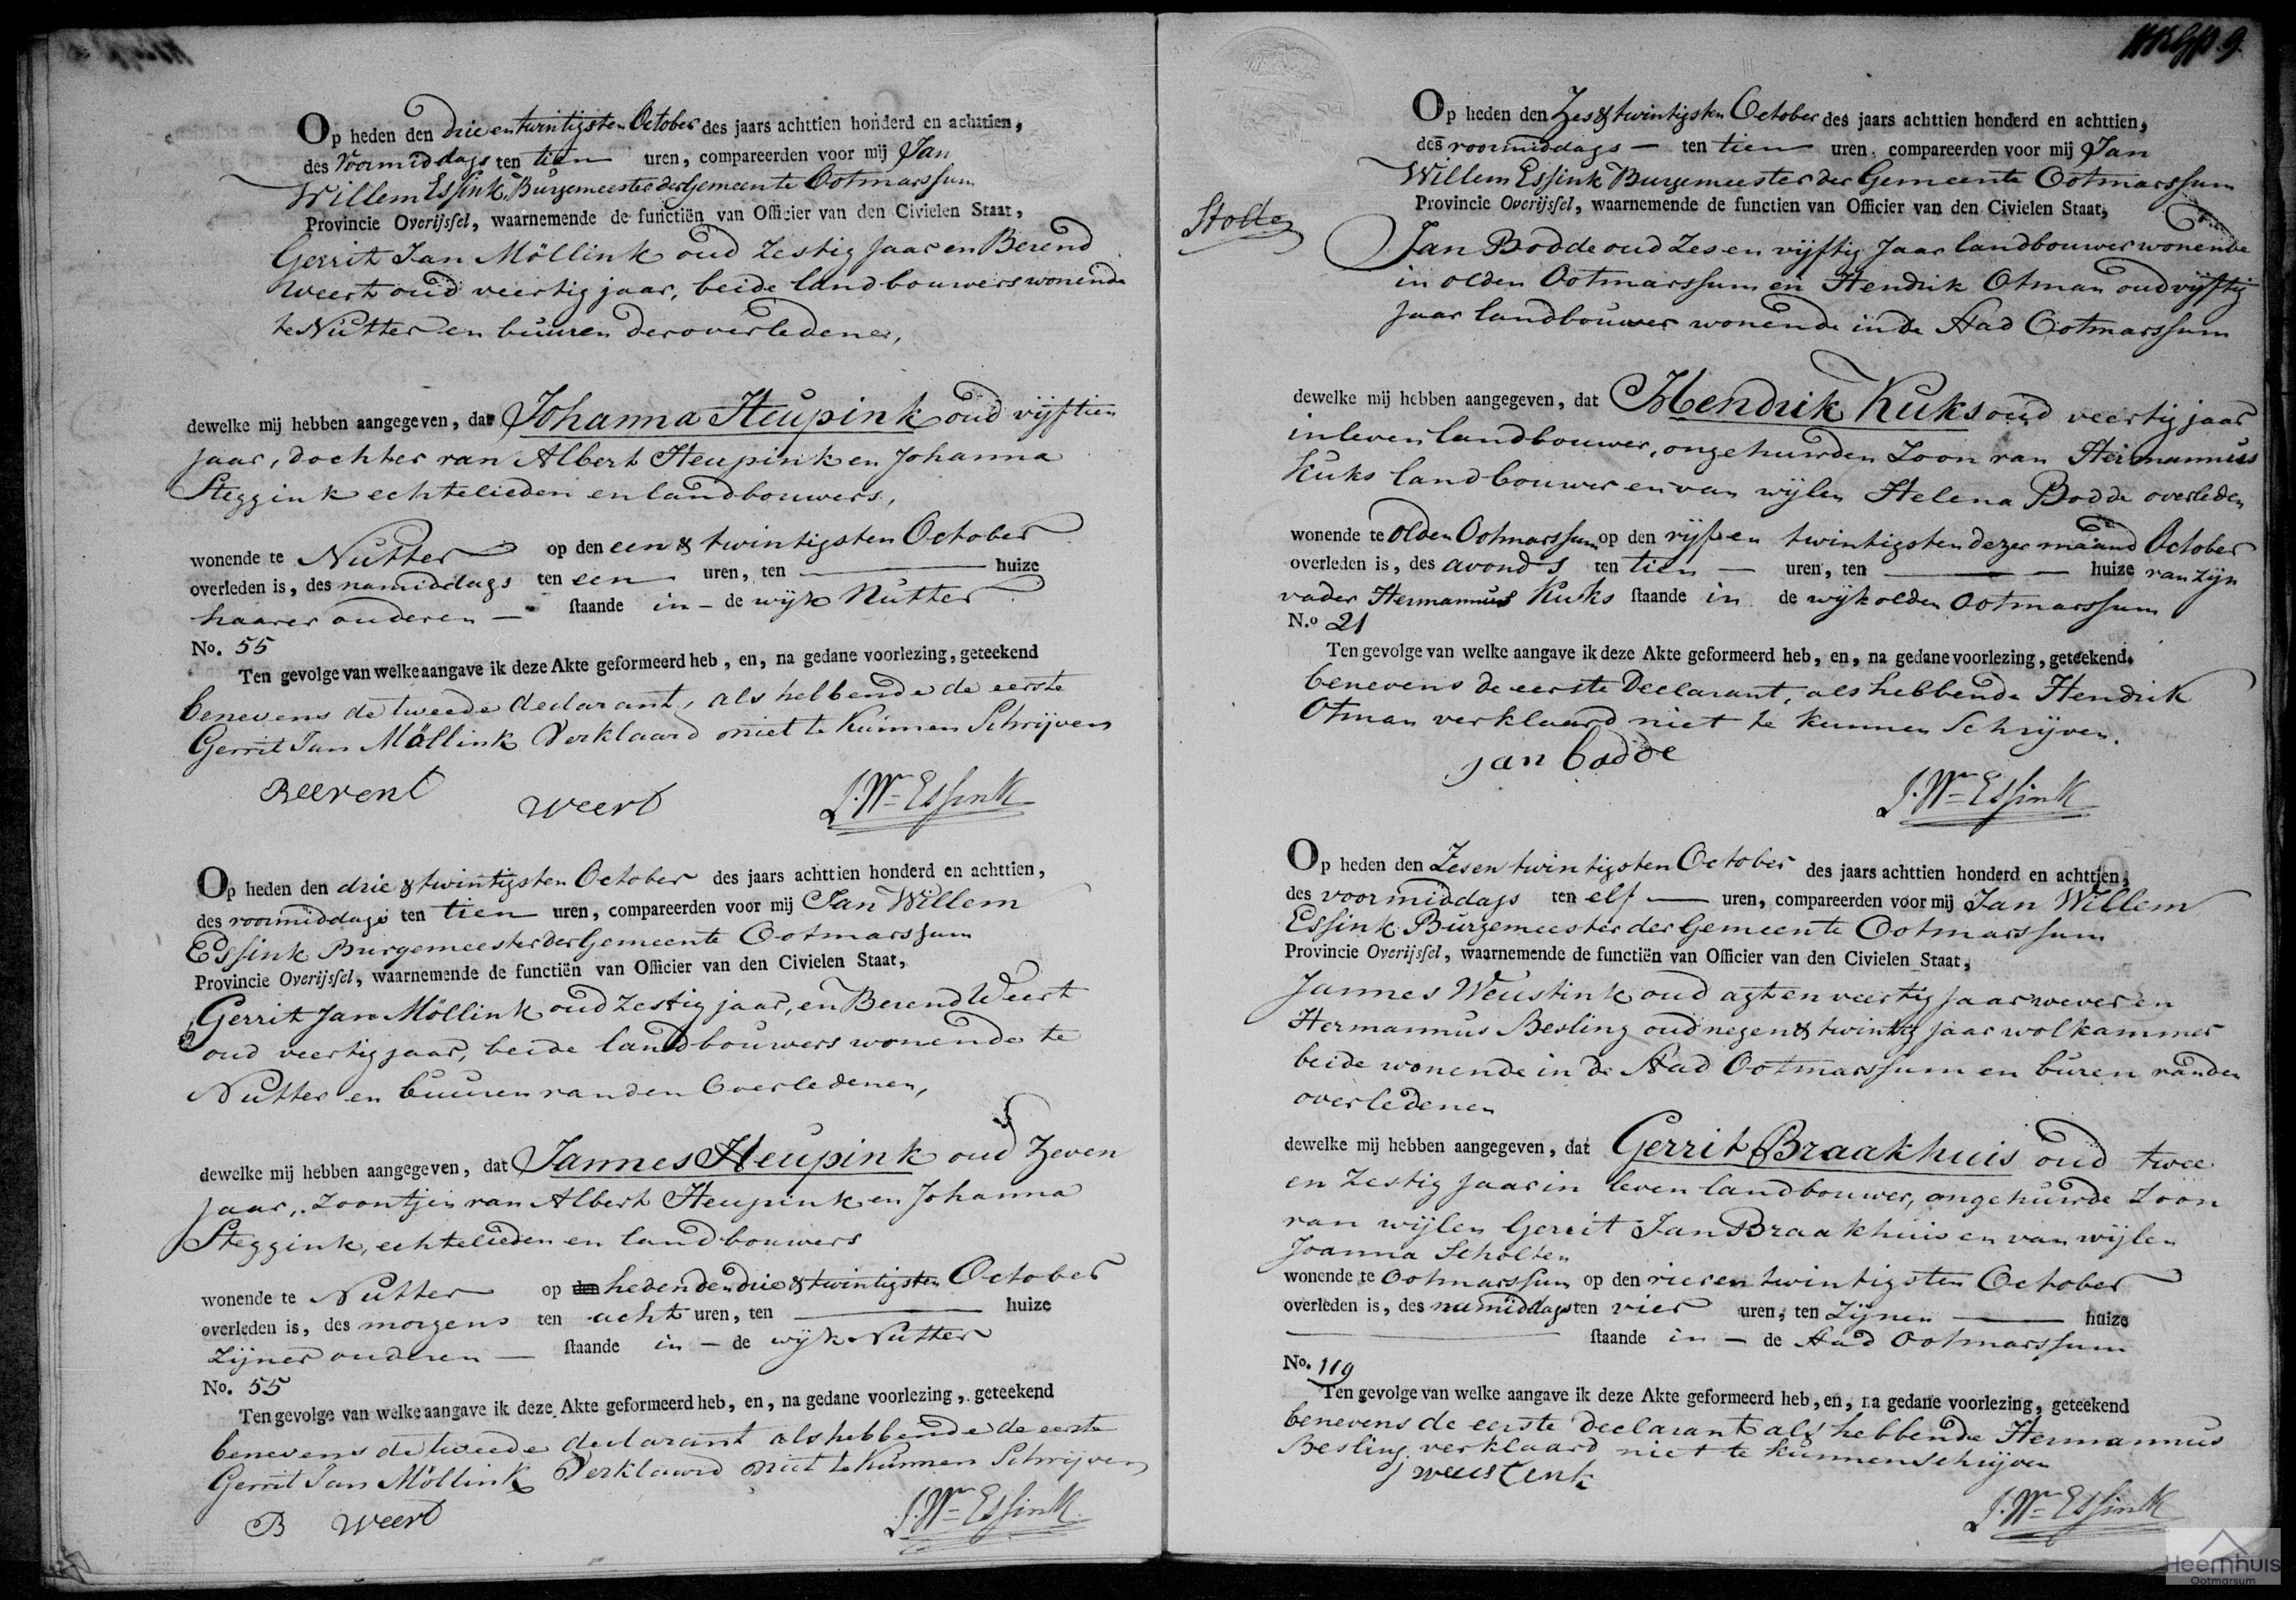 Op heden den drie en twintigsten October des jaars achttien honderd en achttien,
des voormiddags ten tien uren, compareerden voor mij Jan
Willem Essink, Burgemeester der Gemeente Ootmarssum
Provincie Overijssel, waarnemende de functiën van Officier van den Civielen Staat,
Gerrit Jan Möllink oud zestig jaar en Berend
Weert oud veertig jaar, beide landbouwers wonende
te Nutter en buuren der overledene,
dewelke mij hebben aangegeven, dat Johanna Heupink oud vijftien
jaar, dochter van Albert Heupink en Johanna
Steggink echtelieden en landbouwers,
wonende te Nutter op den een & twintigsten October
overleden is, des namiddags ten een uren, ten huize
haarer ouderen staande in de wijk Nutter
No. 55
Ten gevolge van welke aangave ik deze Akte geformeerd heb, en, na gedane voorlezing, geteekend
benevens de tweede declarant, als hebbende de eerste
Gerrit Jan Möllink Verklaard niet te kunnen Schrijven
Beerent Weert J. Wm Essink
Op heden den drie & twintigsten October des jaars achttien honderd en achttien,
des voormiddags ten tien uren, compareerden voor mij Jan Willem
Essink Burgemeester der Gemeente Ootmarssum
Provincie Overijssel, waarnemende de functiën van Officier van den Civielen Staat,
Gerrit Jan Möllink oud zestig jaar, en Berend Weert
oud veertig jaar, beide landbouwers wonende te
Nutter en buuren van den Overledenen,
dewelke mij hebben aangegeven, dat Jannes Heupink oud Zeven
jaar, zoontjen van Albert Heupink en Johanna
Steggink, echtelieden en landbouwers
wonende te Nutter op den heden den drie & twintigsten October
overleden is, des morgens ten acht uren, ten huize
Zijner ouderen staande in de wijk Nutter
No. 55
Ten gevolge van welke aangave ik deze Akte geformeerd heb, en, na gedane voorlezing, geteekend
benevens de tweede declarant als hebbende de eerste
Gerrit Jan Möllink Verklaard niet te Kunnen Schrijven
B Weert J. Wm Essink
9
Op heden den Zes & twintigsten October des jaars achttien honderd en achttien,
des voormiddags ten tien uren, compareerden voor mij Jan
Willem Essink Burgemeester der Gemeente Ootmarssum
Provincie Overijssel, waarnemende de functien van Officier van den Civielen Staat,
Stolte
Jan Bodde oud Zes en vijftig Jaar landbouwer wonende
in olden Ootmarssum en Hendrik Otman oud vijftig
Jaar landbouwer wonende in de Stad Ootmarssum
dewelke mij hebben aangegeven, dat Hendrik Kuks oud veertig jaar
in leven landbouwer, ongehuwden Zoon van Hermannus
Kuks landbouwer en van wijlen Helena Bodde overleden
wonende te olden Ootmarssum op den vijf en twintigsten dezer maand October
overleden is, des avonds ten tien uren, ten huize van zijn
vader Hermannus Kuks staande in de wijk olden Ootmarssum
N.o 21
Ten gevolge van welke aangave ik deze Akte geformeerd heb, en, na gedane voorlezing, geteekend.
benevens de eerste Declarant, als hebbende Hendrik
Otman verklaard niet te kunnen Schrijven.
jan bodde
J. Wm Essink
Op heden den Zes en twintigsten October des jaars achttien honderd en achttien,
des voormiddags ten elf uren, compareerden voor mij Jan Willem
Essink Burgemeester der Gemeente Ootmarssum
Provincie Overijssel, waarnemende de functiën van Officier van den Civielen Staat,
Jannes Weustink oud agt en veertig Jaar wever en
Hermannus Besling oud negen & twintig jaar wolkammer
beide wonende in de Stad Ootmarssum en buren van den
overledenen
dewelke mij hebben aangegeven, dat Gerrit Braakhuis oud twee
en Zestig Jaar in leven landbouwer, ongehuwde Zoon
van wijlen Gerrit Jan Braakhuis en van wijlen
Joanna Scholten
wonende te Ootmarssum op den vier en twintigsten October
overleden is, des namiddags ten vier uren, ten Zijnen huize
staande in de Stad Ootmarssum
No. 119
Ten gevolge van welke aangave ik deze Akte geformeerd heb, en, na gedane voorlezing, geteekend
benevens de eerste Declarant als hebbende Hermannus
Besling verklaard niet te kunnen Schrijven
J weustink
J. Wm Essink
Heemhuis
Ootmarsum